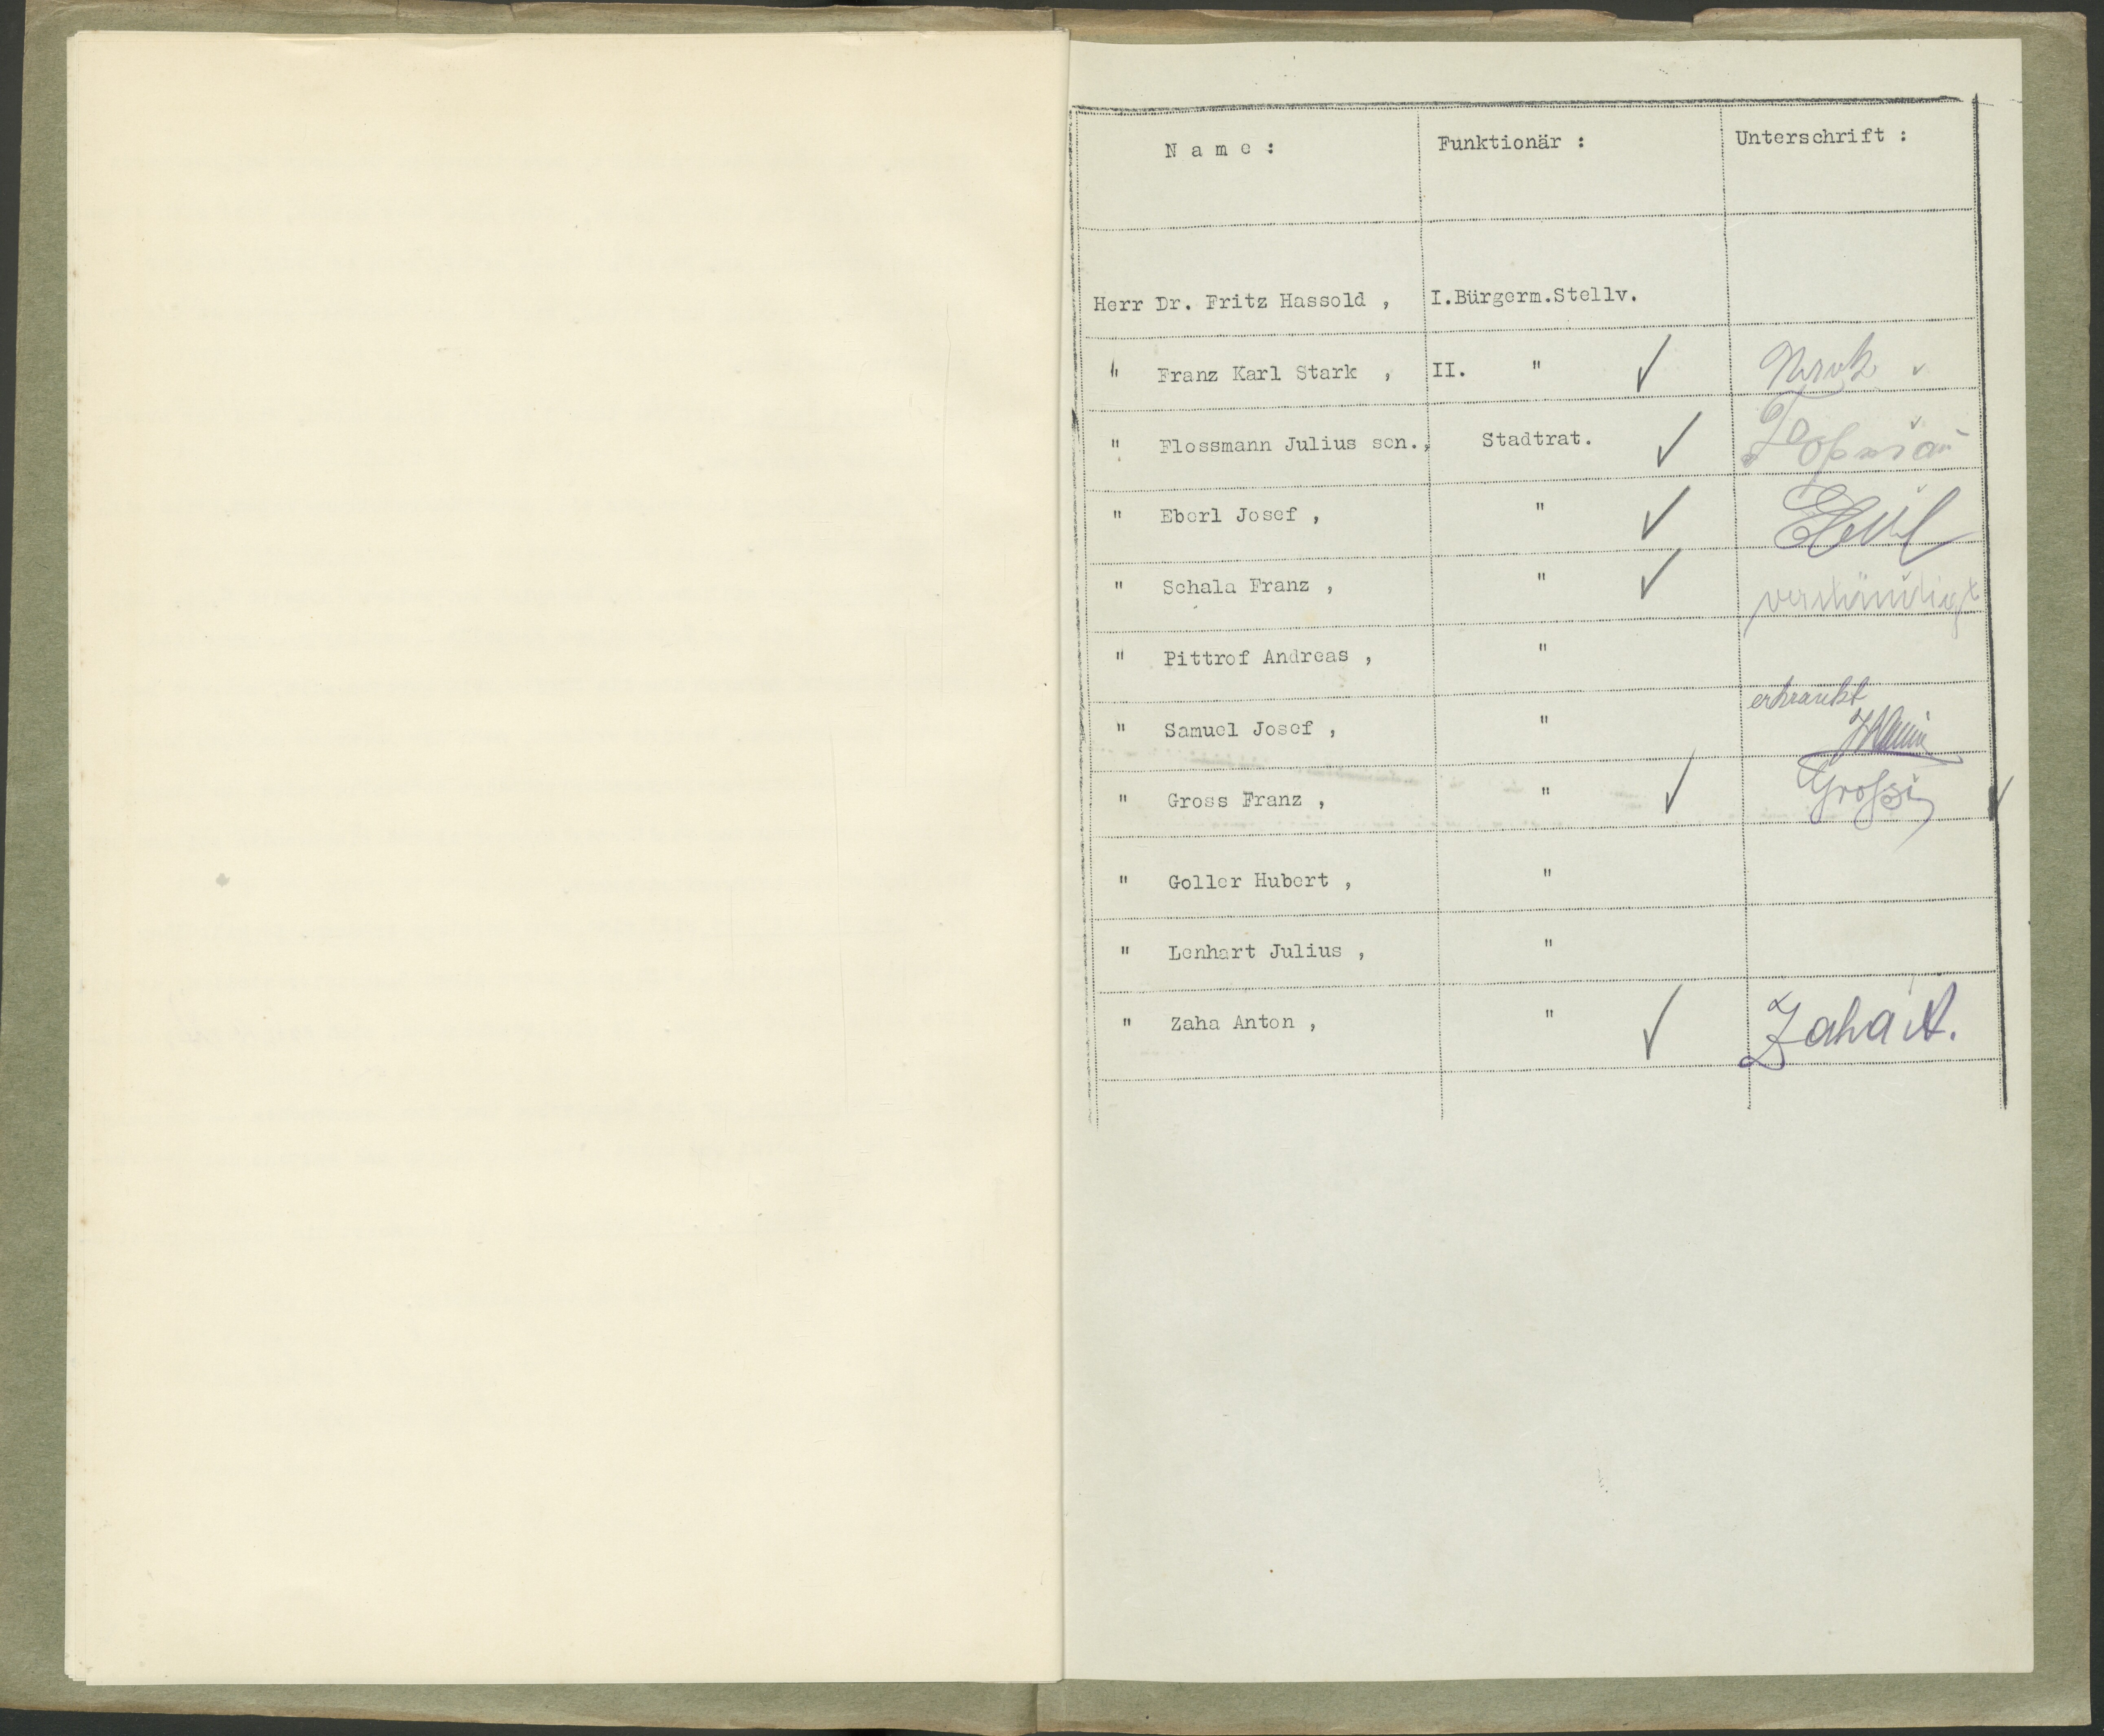 N a m e : Funktionär : Unterschrift :
Herr Dr. Fritz Hassold , I.Bürgerm.Stellv.
" Franz Karl Stark , II. " ✓
" Flossmann Julius sen., Stadtrat. ✓
" Eberl Josef , " ✓ Eberl
" Schala Franz , " ✓ verständigt
" Pittrof Andreas , "
erkrankt
" Samuel Josef , "
" Gross Franz , " ✓ Gross ✓
" Goller Hubert , "
" Lenhart Julius , "
" Zaha Anton , " ✓ Zaha A.